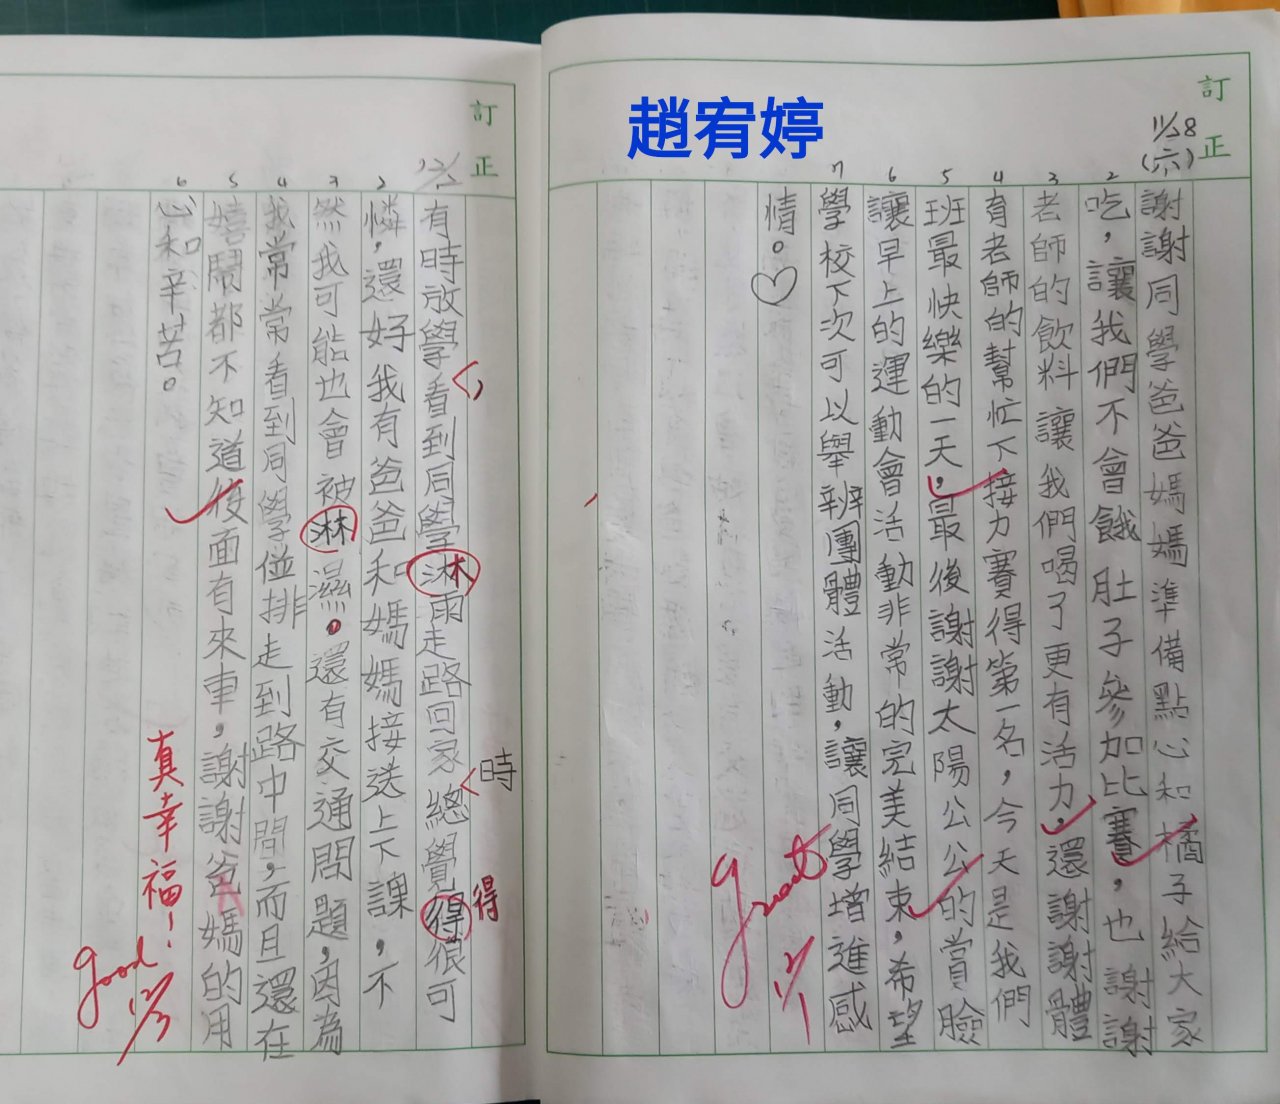 趙宥婷
訂正
11/28
(六)
謝謝同學爸爸媽媽準備點心和橘子給大家
2
吃，讓我們不會餓肚子參加比賽，也謝謝
3
老師的飲料讓我們喝了更有活力，還謝謝體
4
育老師的幫忙下接力賽得第一名，今天是我們
5
班最快樂的一天，最後謝謝太陽公公的賞臉
6
讓早上的運動會活動非常的完美結束，希望
7
學校下次可以舉辨團體活動，讓同學增進感
情。♡
great
12/1
訂正
有時放學看到同學淋雨走路回家總覺得很可
，
時
得
2
憐，還好我有爸爸和媽媽接送上下課，不
3
然我可能也會被淋濕。還有交通問題，因為
4
我常常看到同學並排走到路中間，而且還在
5
嬉鬧都不知道後面有來車，謝謝爸媽的用
6
心和辛苦。
真幸福！
good
12/3